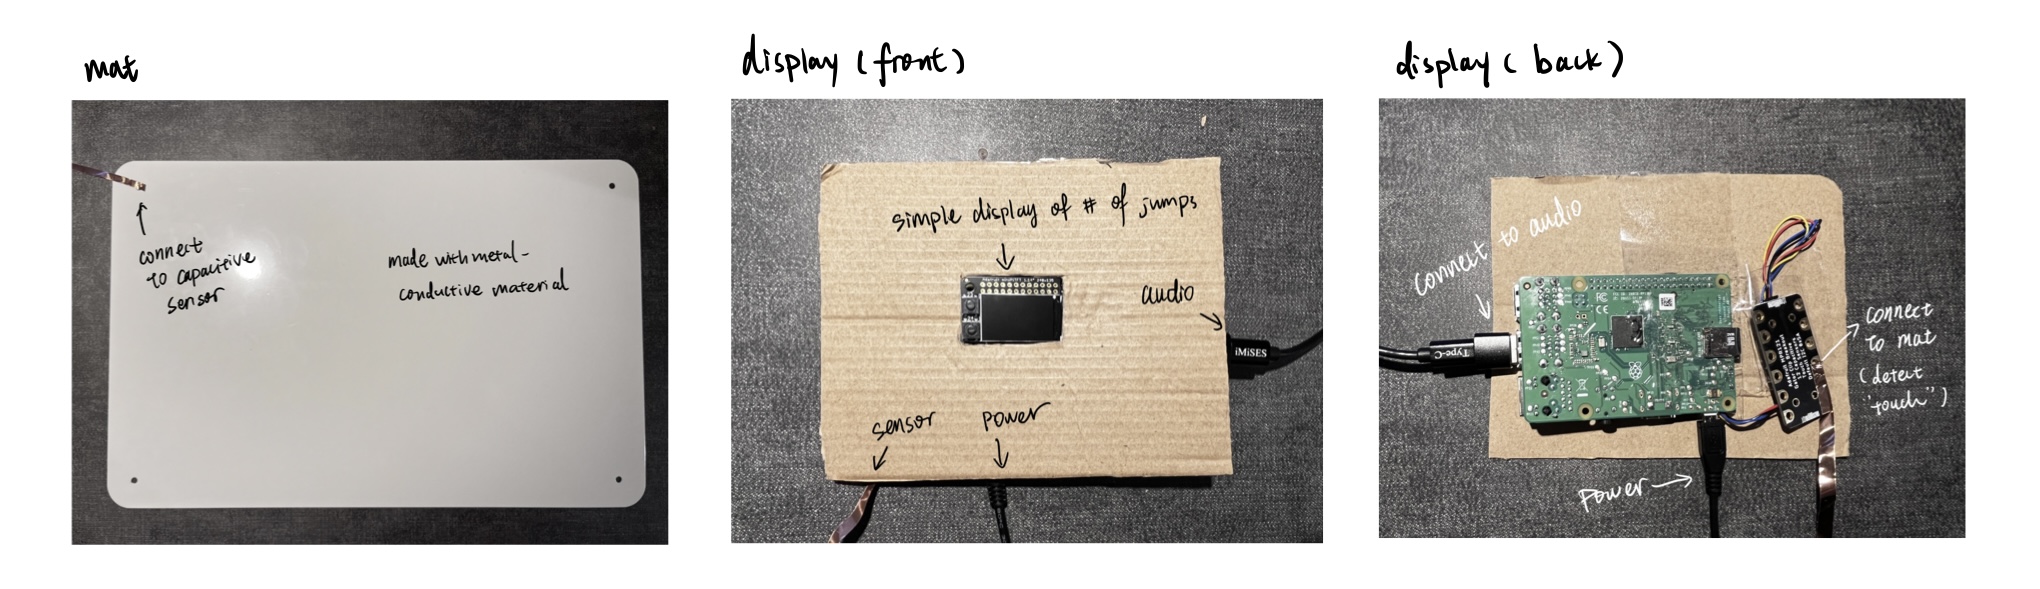 mat
connect
to capacitive
sensor
made with metal-
conductive material
display (front)
simple display of # of jumps
audio
iMiSES
sensor
power
display (back)
connect to audio
Type-C
FC
CE
connect
to mat
(detect
"touch")
power